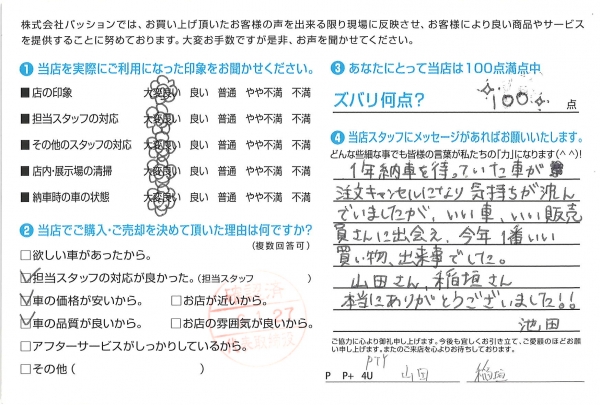 株式会社パッションでは、お買い上げ頂いたお客様の声を出来る限り現場に反映させ、お客様により良い商品やサービス
を提供することに努めております。大変お手数ですが是非、お声を聞かせてください。
❶ 当店を実際にご利用になった印象をお聞かせください。
■店の印象 大変良い 良い 普通 やや不満 不満
■担当スタッフの対応 大変良い 良い 普通 やや不満 不満
■その他のスタッフの対応 大変良い 良い 普通 やや不満 不満
■店内・展示場の清掃 大変良い 良い 普通 やや不満 不満
■納車時の車の状態 大変良い 良い 普通 やや不満 不満
❷ 当店でご購入・ご売却を決めて頂いた理由は何ですか?
(複数回答可)
□欲しい車があったから。
□担当スタッフの対応が良かった。(担当スタッフ )
□車の価格が安いから。 □お店が近いから。
□車の品質が良いから。 □お店の雰囲気が良いから。
□アフターサービスがしっかりしているから。
□その他( )
確認済
1.27
❸ あなたにとって当店は100点満点中
ズバリ何点? 100 点
❹ 当店スタッフにメッセージがあればお願いいたします。
どんな些細な事でも皆様の言葉が私たちの「力」になります(^ ^)!
1年納車を待っていた車が
注文キャンセルになり気持ちが沈ん
でいましたが、いい車、いい販売
員さんに出会え、今年1番いい
買い物、出来事でした。
山田さん、稲垣さん
本当にありがとうございました!!
池田
ご協力に心より御礼申し上げます。今後も宜しくお引き立て、ご愛顧のほどお願
い申し上げます。またのご来店を心よりお待ちしております。
P P+ 4U PTY 山田 稲垣